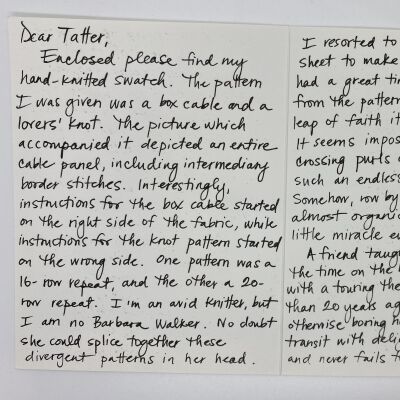 Dear Tatter,
Enclosed please find my
hand-knitted swatch. The pattern
I was given was a box cable and a
lovers' knot. The picture which
accompanied it depicted an entire
cable panel, including intermediary
border stitches. Interestingly,
instructions for the box cable started
on the right side of the fabric, while
instructions for the knot pattern started
on the wrong side. One pattern was a
16-row repeat, and the other a 20-
row repeat. I'm an avid knitter, but
I am no Barbara Walker. No doubt
she could splice together these
divergent patterns in her head.
I resorted to
sheet to make
had a great tim
from the pattern
leap of faith it
It seems impos
crossing purls o
such an endless
Somehow, row by
almost organic
little miracle e
A friend taug
the time on the
with a touring the
than 20 years ag
otherwise boring h
transit with deli
and never fails t